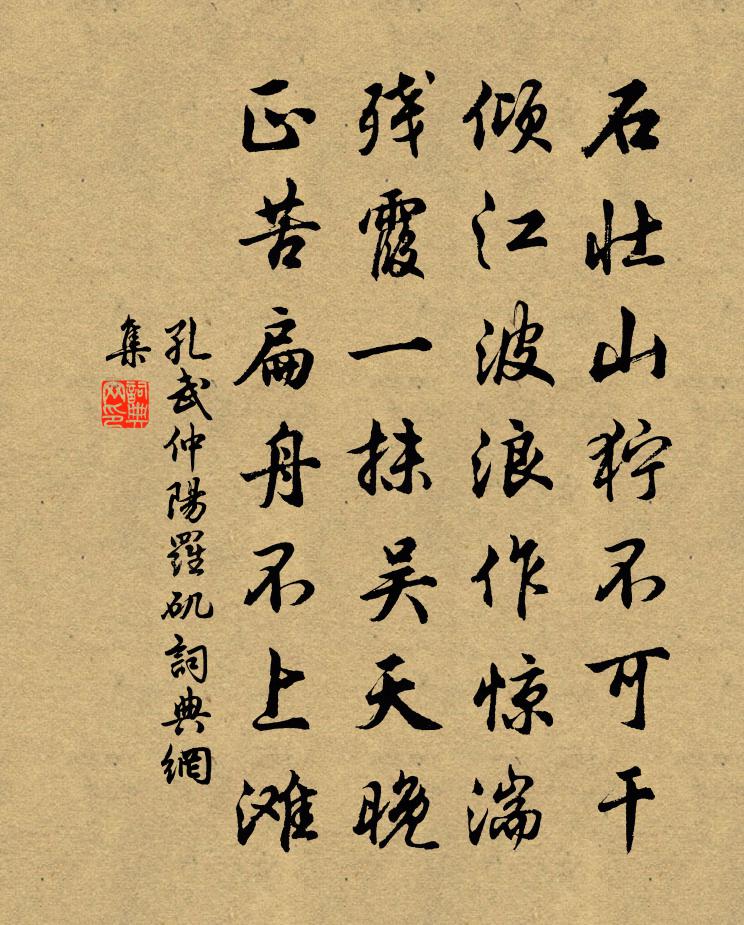 石壮山狞不可干
倾江波浪作惊湍
残霞一抹吴天晚
正苦扁舟不上滩
孔武仲陽羅矶詞典網
集
詞典网印